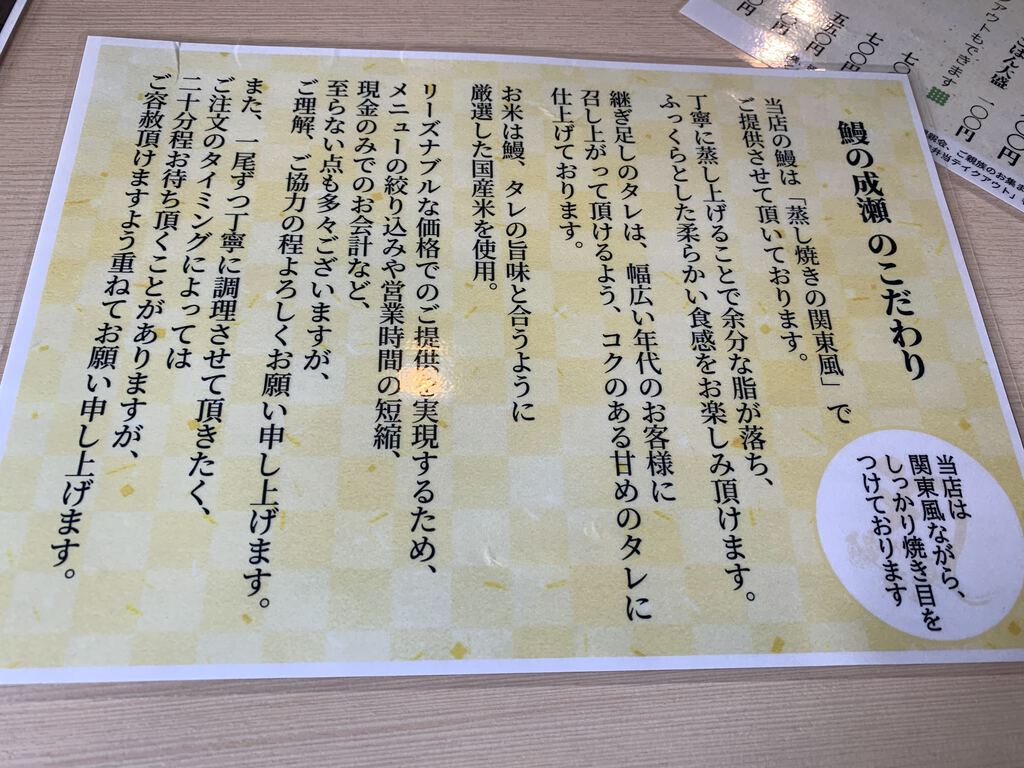 鰻の成瀬 のこだわり
当店は
関東風ながら、
しっかり焼き目を
つけております
当店の鰻は「蒸し焼きの関東風」で
ご提供させて頂いております。
丁寧に蒸し上げることで余分な脂が落ち、
ふっくらとした柔らかい食感をお楽しみ頂けます。
継ぎ足しのタレは、幅広い年代のお客様に
召し上がって頂けるよう、コクのある甘めのタレに
仕上げております。
お米は鰻、タレの旨味と合うように
厳選した国産米を使用。
リーズナブルな価格でのご提供を実現するため、
メニューの絞り込みや営業時間の短縮、
現金のみでのお会計など、
至らない点も多々ございますが、
ご理解、ご協力の程よろしくお願い申し上げます。
また、一尾ずつ丁寧に調理させて頂きたく、
ご注文のタイミングによっては
二十分程お待ち頂くことがありますが、
ご容赦頂けますよう重ねてお願い申し上げます。
ごはん大盛 一〇〇円
アウトもできます
一〇〇円
五五〇円
七〇〇円